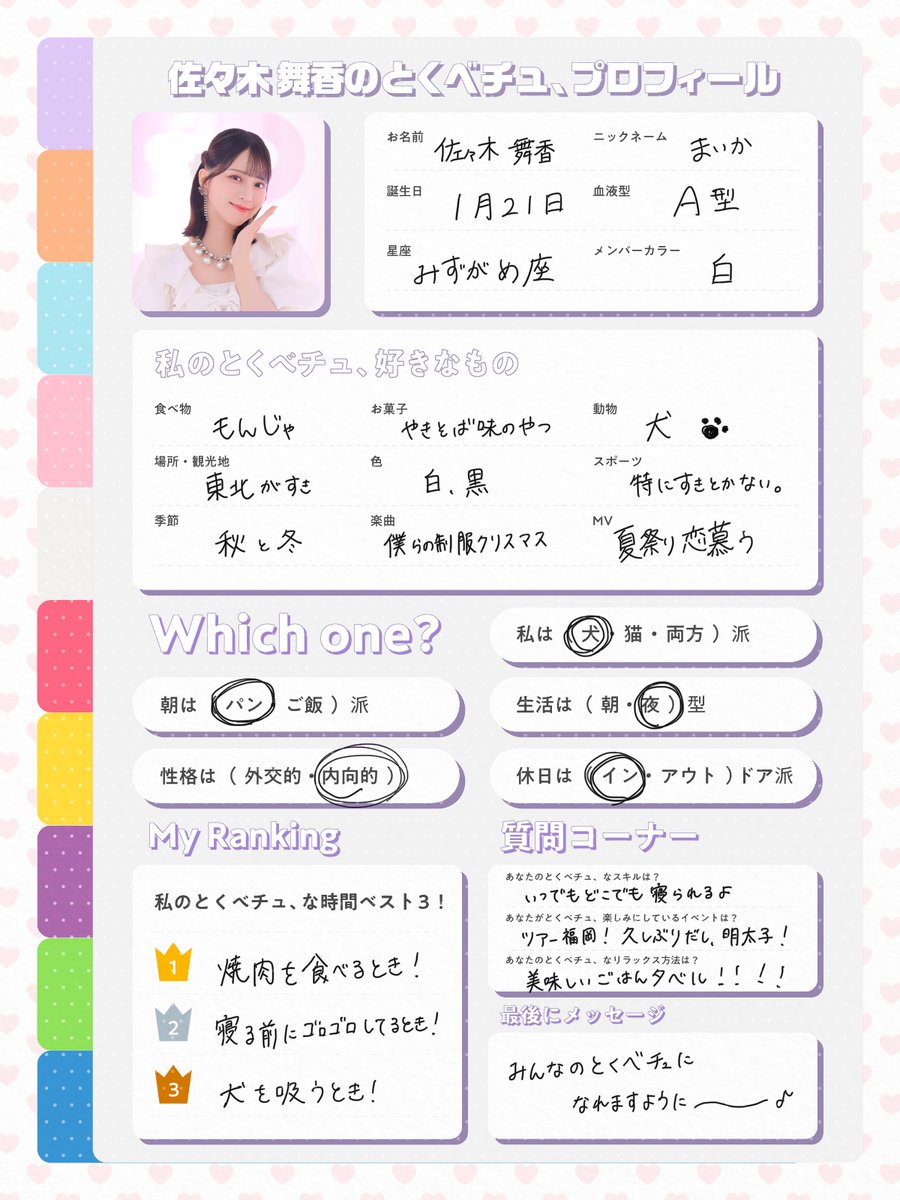 佐々木 舞香のとくべチュ、プロフィール
お名前 佐々木 舞香 ニックネーム まいか
誕生日 1月21日 血液型 A型
星座 みずがめ座 メンバーカラー 白
私のとくべチュ、好きなもの
食べ物 もんじゃ お菓子 やきとば味のやつ 動物 犬
場所・観光地 東北がすき 色 白、黒 スポーツ 特にすきとかない。
季節 秋と冬 楽曲 僕らの制服クリスマス MV 夏祭り恋慕う
Which one?
私は（ 犬・猫・両方 ）派
朝は（ パン・ご飯 ）派
生活は（ 朝・夜 ）型
性格は（ 外交的・内向的 ）
休日は（ イン・アウト ）ドア派
My Ranking
私のとくべチュ、な時間ベスト3！
1 焼肉を食べるとき！
2 寝る前にゴロゴロしてるとき！
3 犬を吸うとき！
質問コーナー
あなたのとくべチュ、なスキルは？
いつでもどこでも寝られるよ
あなたがとくべチュ、楽しみにしているイベントは？
ツアー福岡！久しぶりだし、明太子！
あなたのとくべチュ、なリラックス方法は？
美味しいごはんタベル！！！！
最後にメッセージ
みんなのとくべチュに
なれますように〜♪